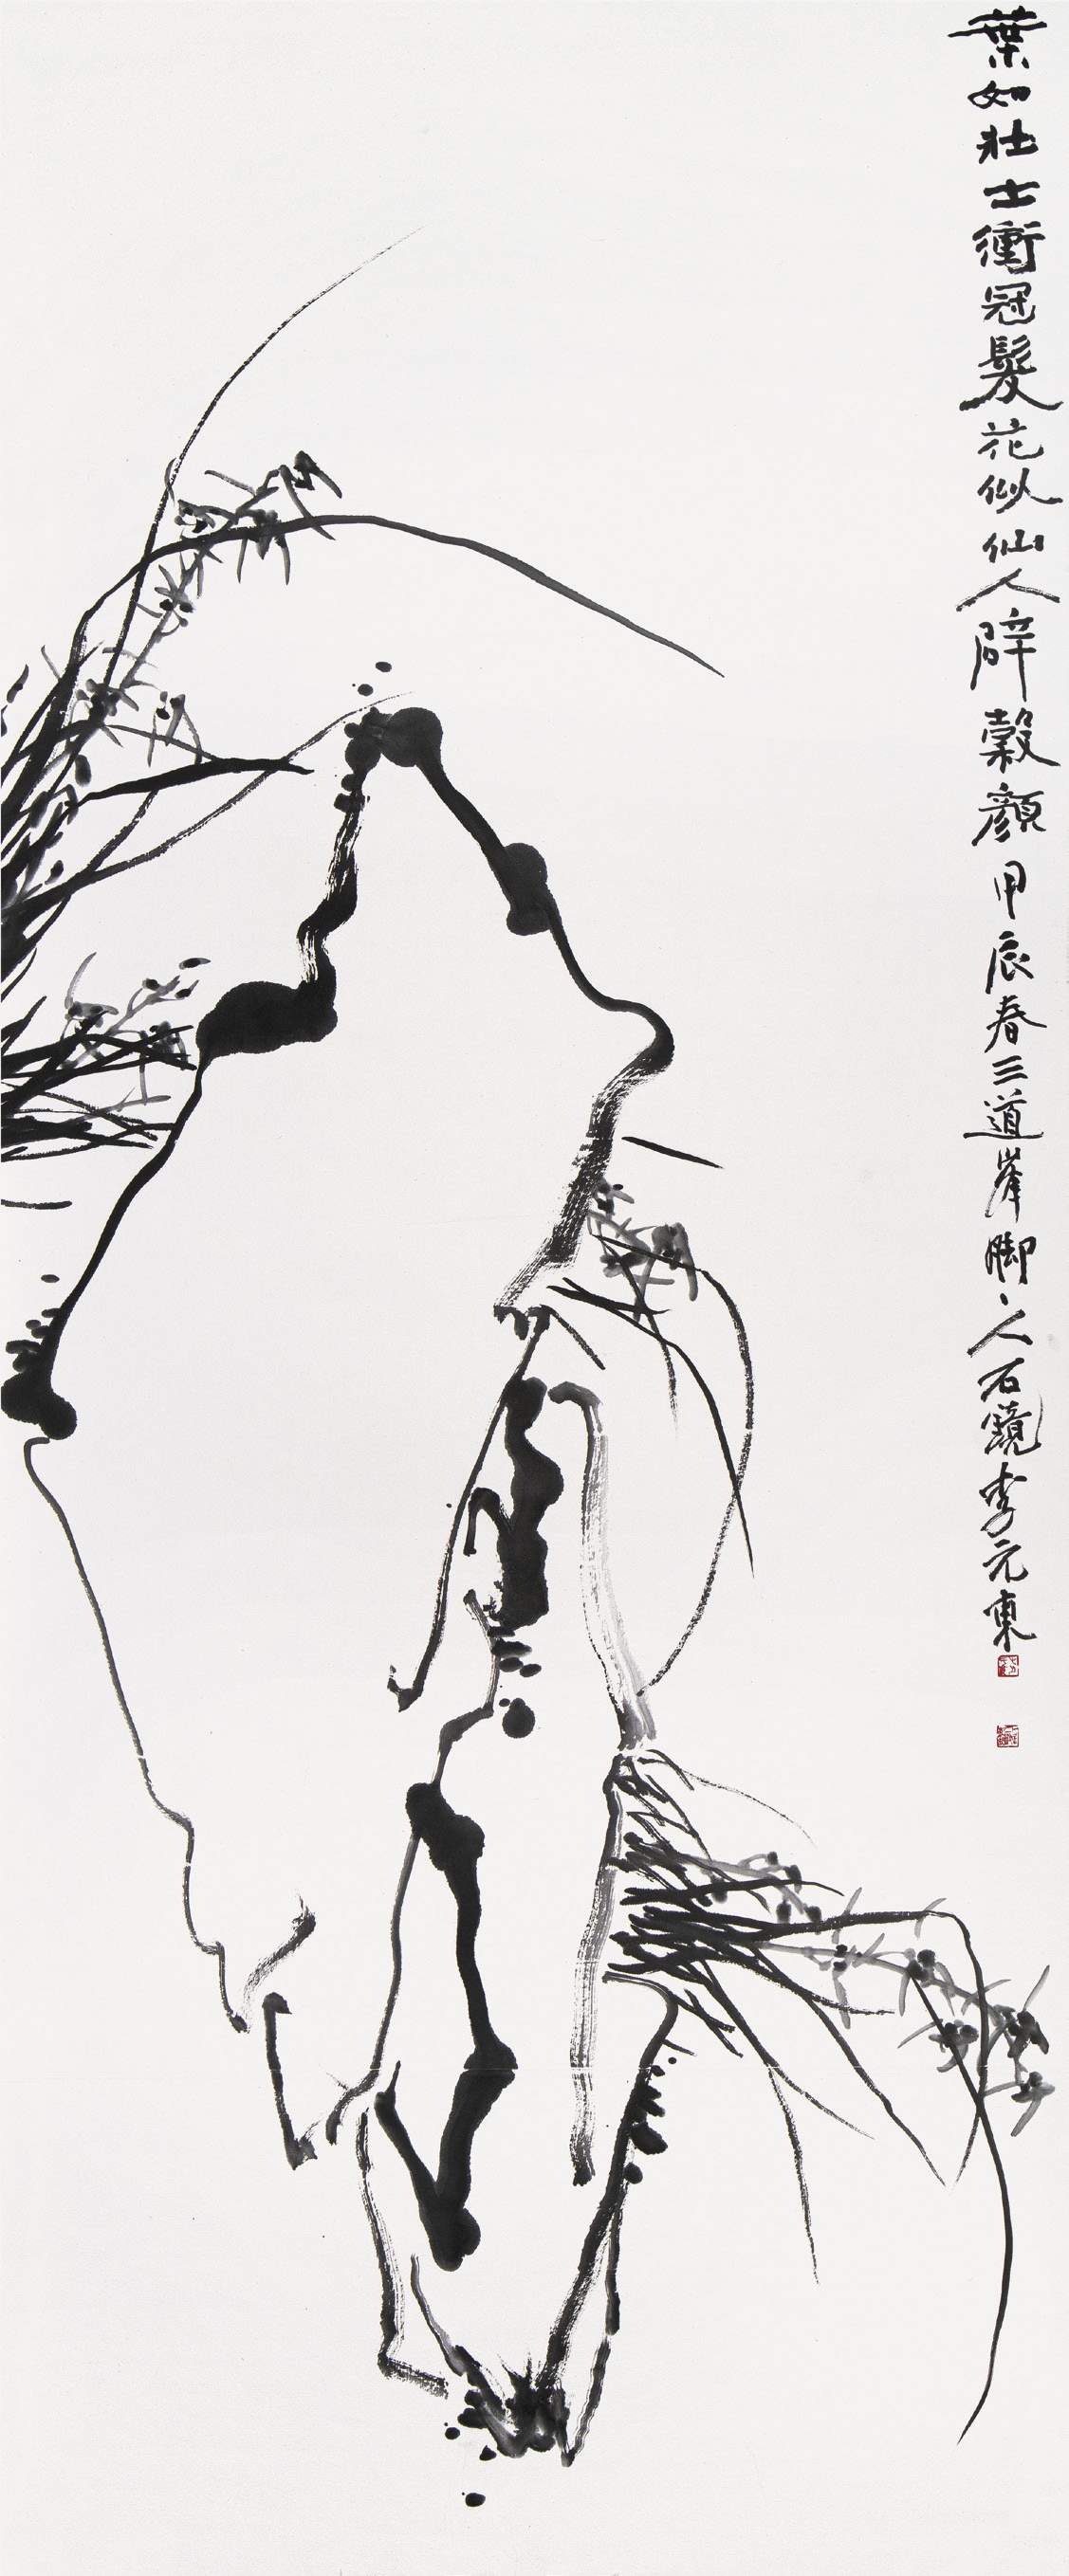 葉如壯士衝冠髮花似仙人辟穀顏甲辰春三道峯腳〻人石鏡李元東